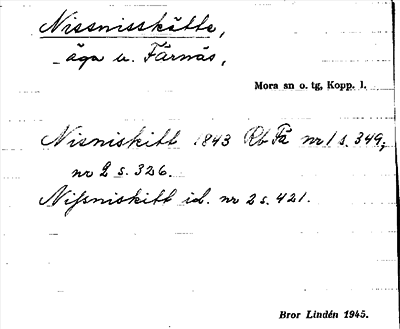 Nissnisskitte,
äga u. Färnäs,
Mora sn o. tg, Kopp. l.
Nisniskitt 1843 Rb Fä nr 1 s. 349;
nr 2 s. 326.
Nissniskitt id. nr 2 s. 421.
Bror Lindén 1945.